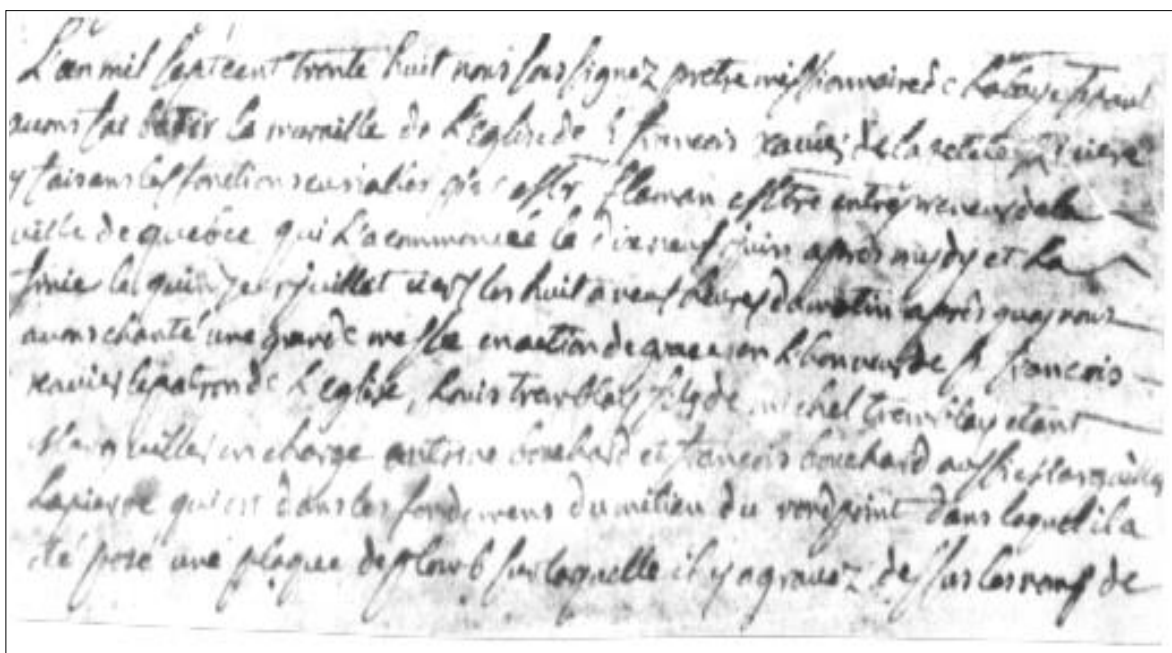 L'an mil sept cent trente huit nous sous signez pretre missionnaire de La baye St paul
avons fai batir la muraille de L'Eglise de S françois xavier de la petite Riviere
y faisans les fonctions curialles par Flaman entrepreneur de la
ville de quebec qui L'a commencée le dixneuf juin apres mydy et La
finies le quinzeme juillet vers les huit a neuf heures du matin après quoy nous
avons chanté une grande messe en action de grace en L'honneur de St françois
xavier le patron de L'eglise, Louis tremblay fils de michel tremblay etant
Marguiller en charge antoine bouchard et françois bouchard aussi Marguilles
La pierre qui est dans les fondemens du milieu du rondpoint dans laquel il a
été posé une plaque de plomb sur laquelle il y a gravez dessus les noms de